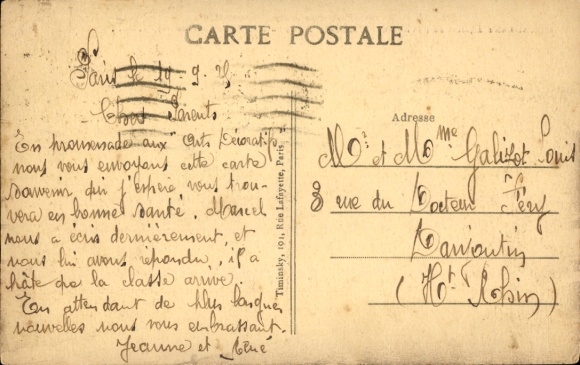 CARTE POSTALE
Paris le 19 9. 25
Chers Parents
En promenade aux "Arts Décoratifs"
nous vous envoyons cette carte
souvenir qui j'espère vous trou-
vera en bonne santé. Marcel
nous a écris dernièrement, et
nous lui avons répondu, il a
hâte que la classe arrive.
En attendant de plus longues
nouvelles nous vous embrassant.
Jeanne et René
Timinsky, 101, Rue Lafayette, Paris
Adresse
Mr et Mme Galizot Louis
8 rue du Docteur
(Ht Rhin)